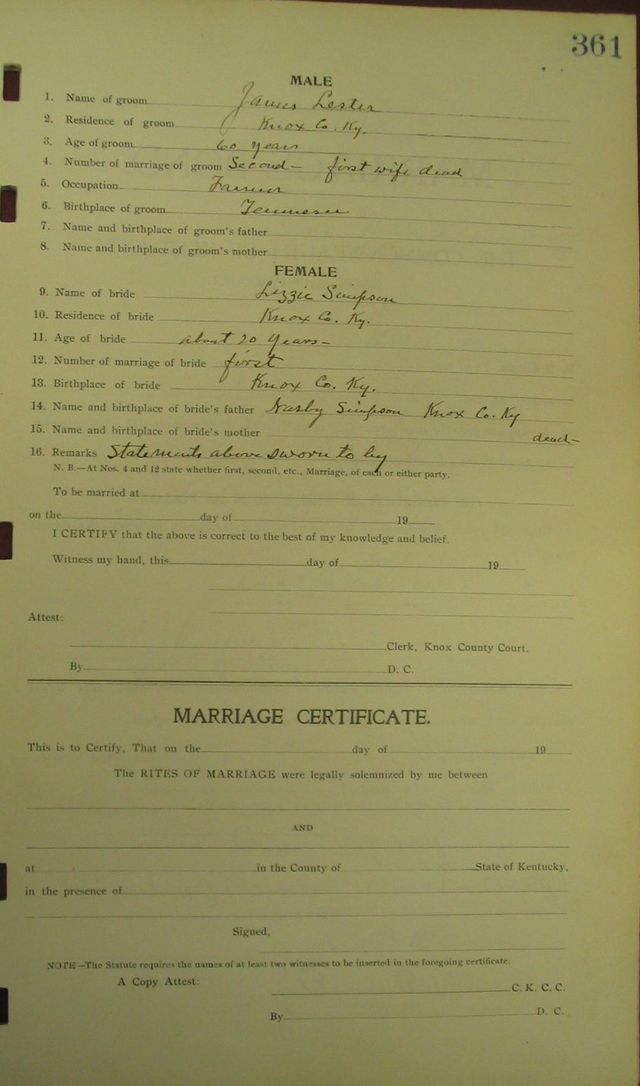 361
MALE
1. Name of groom James Lester
2. Residence of groom Knox Co. Ky.
3. Age of groom 60 years
4. Number of marriage of groom Second — first wife dead
5. Occupation Farmer
6. Birthplace of groom Tennessee
7. Name and birthplace of groom's father
8. Name and birthplace of groom's mother
FEMALE
9. Name of bride Lizzie Simpson
10. Residence of bride Knox Co. Ky.
11. Age of bride about 20 years —
12. Number of marriage of bride first
13. Birthplace of bride Knox Co. Ky.
14. Name and birthplace of bride's father Simpson Knox Co. Ky
15. Name and birthplace of bride's mother dead —
16. Remarks Statements above sworn to by
N. B.—At Nos. 4 and 12 state whether first, second, etc., Marriage, of each or either party.
To be married at
on the day of 19
I CERTIFY that the above is correct to the best of my knowledge and belief.
Witness my hand, this day of 19
Attest:
Clerk, Knox County Court.
By D. C.
MARRIAGE CERTIFICATE.
This is to Certify, That on the day of 19
The RITES OF MARRIAGE were legally solemnized by me between
AND
at in the County of State of Kentucky,
in the presence of
Signed,
NOTE—The Statute requires the names of at least two witnesses to be inserted in the foregoing certificate.
A Copy Attest:
C. K. C. C.
By D. C.